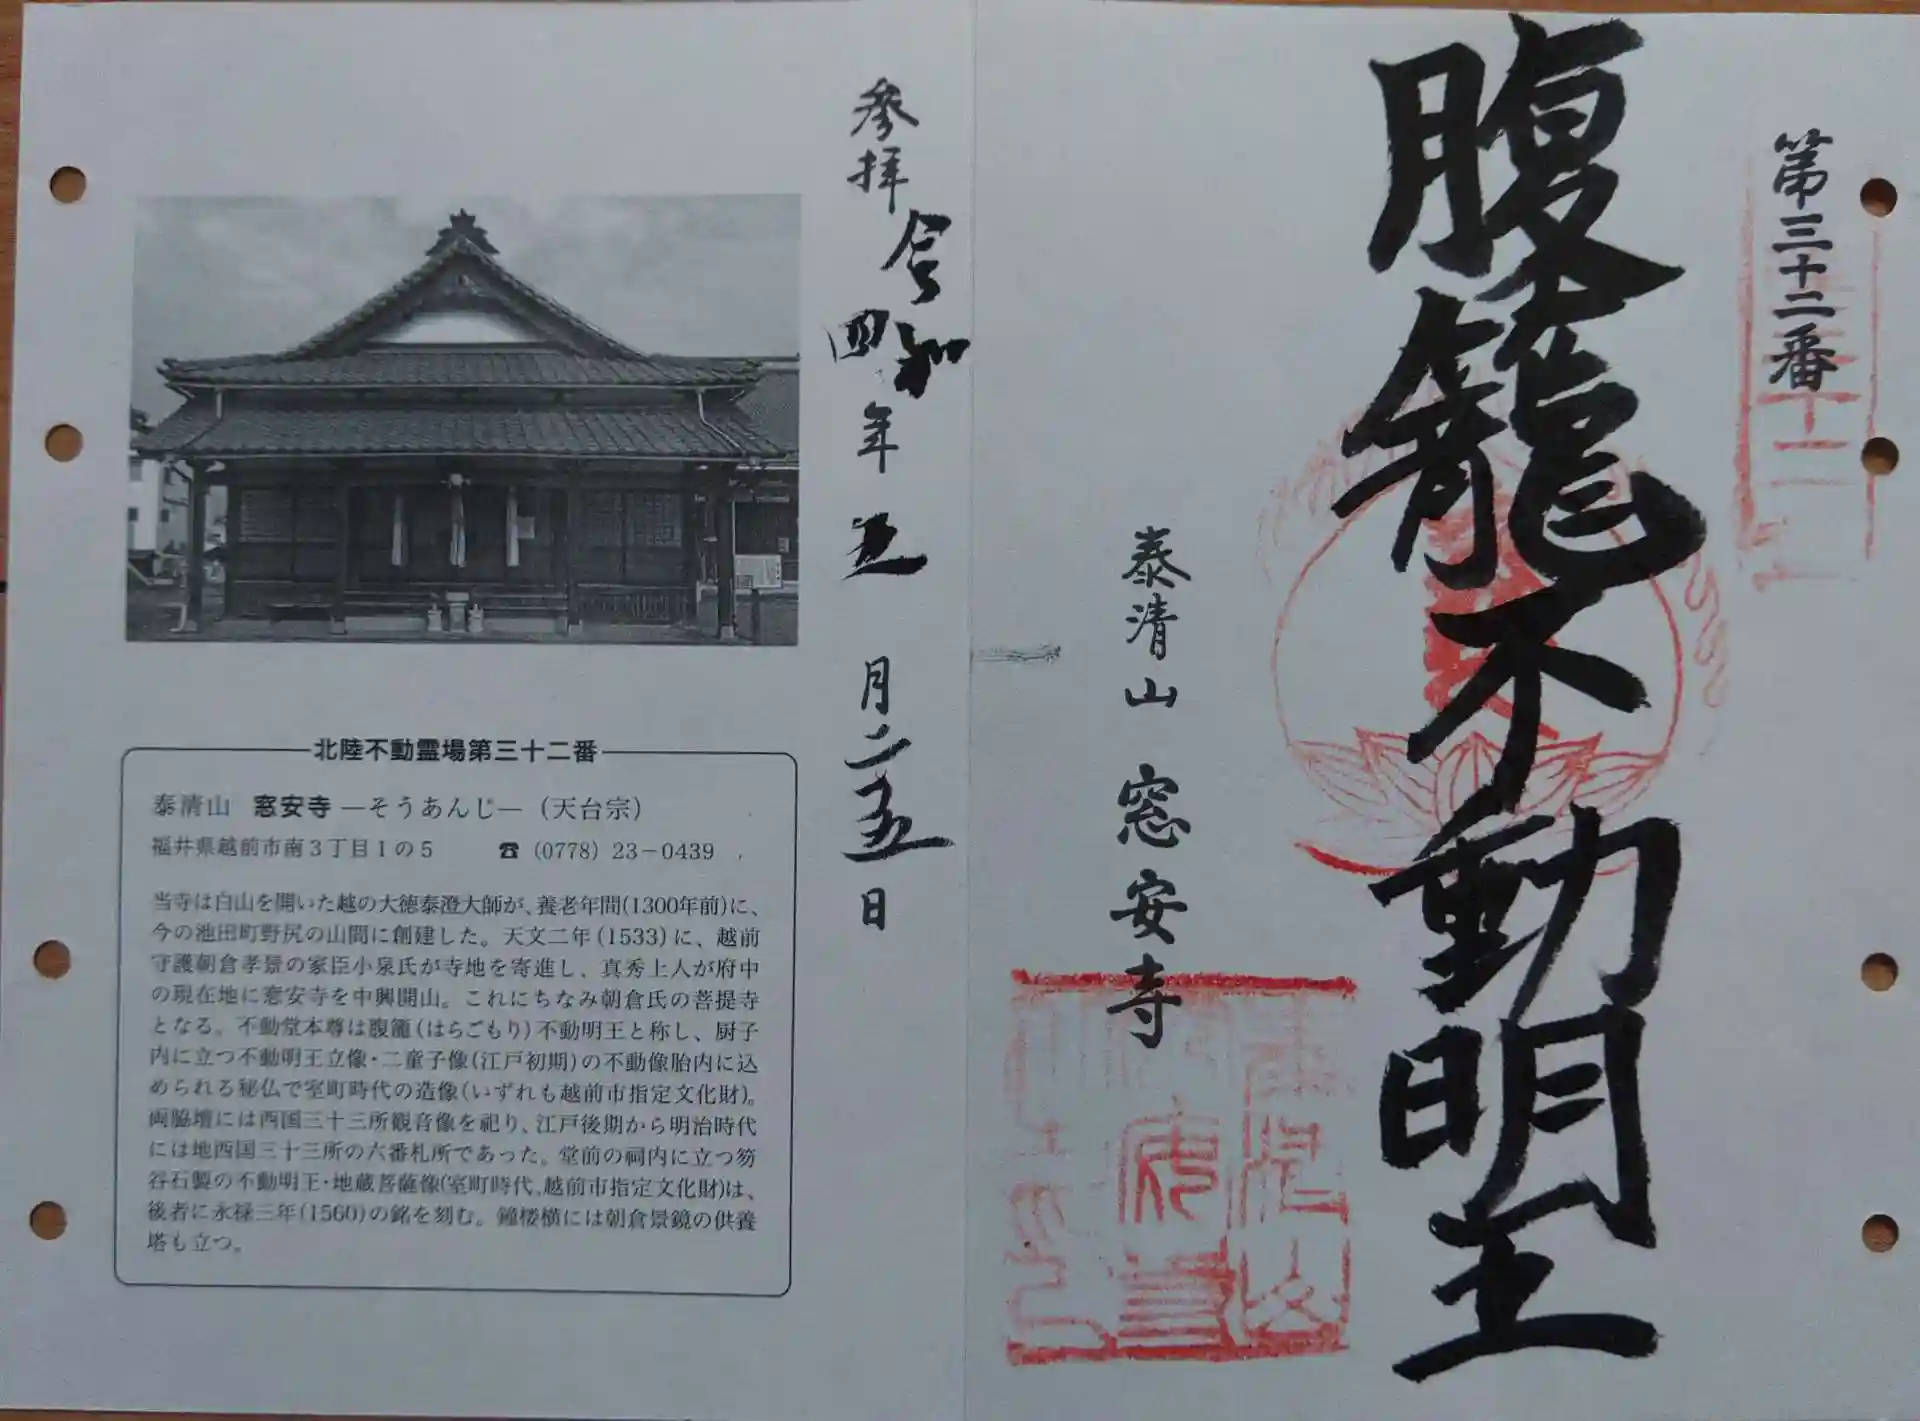 第三十二番
腹籠不動明王
泰清山 窓安寺
参拝 令和四年 五月二五日
北陸不動霊場第三十二番
泰清山 窓安寺 ―そうあんじ―（天台宗）
福井県越前市南３丁目１の５ ☎ (0778) 23－0439
当寺は白山を開いた越の大徳泰澄大師が、養老年間(1300年前)に、
今の池田町野尻の山間に創建した。天文二年(1533)に、越前
守護朝倉孝景の家臣小泉氏が寺地を寄進し、真秀上人が府中
の現在地に窓安寺を中興開山。これにちなみ朝倉氏の菩提寺
となる。不動堂本尊は腹籠(はらごもり)不動明王と称し、厨子
内に立つ不動明王立像・二童子像(江戸初期)の不動像胎内に込
められる秘仏で室町時代の造像(いずれも越前市指定文化財)。
両脇壇には西国三十三所観音像を祀り、江戸後期から明治時代
には地西国三十三所の六番札所であった。堂前の祠内に立つ笏
谷石製の不動明王・地蔵菩薩像(室町時代、越前市指定文化財)は、
後者に永禄三年(1560)の銘を刻む。鐘楼横には朝倉景鏡の供養
塔も立つ。